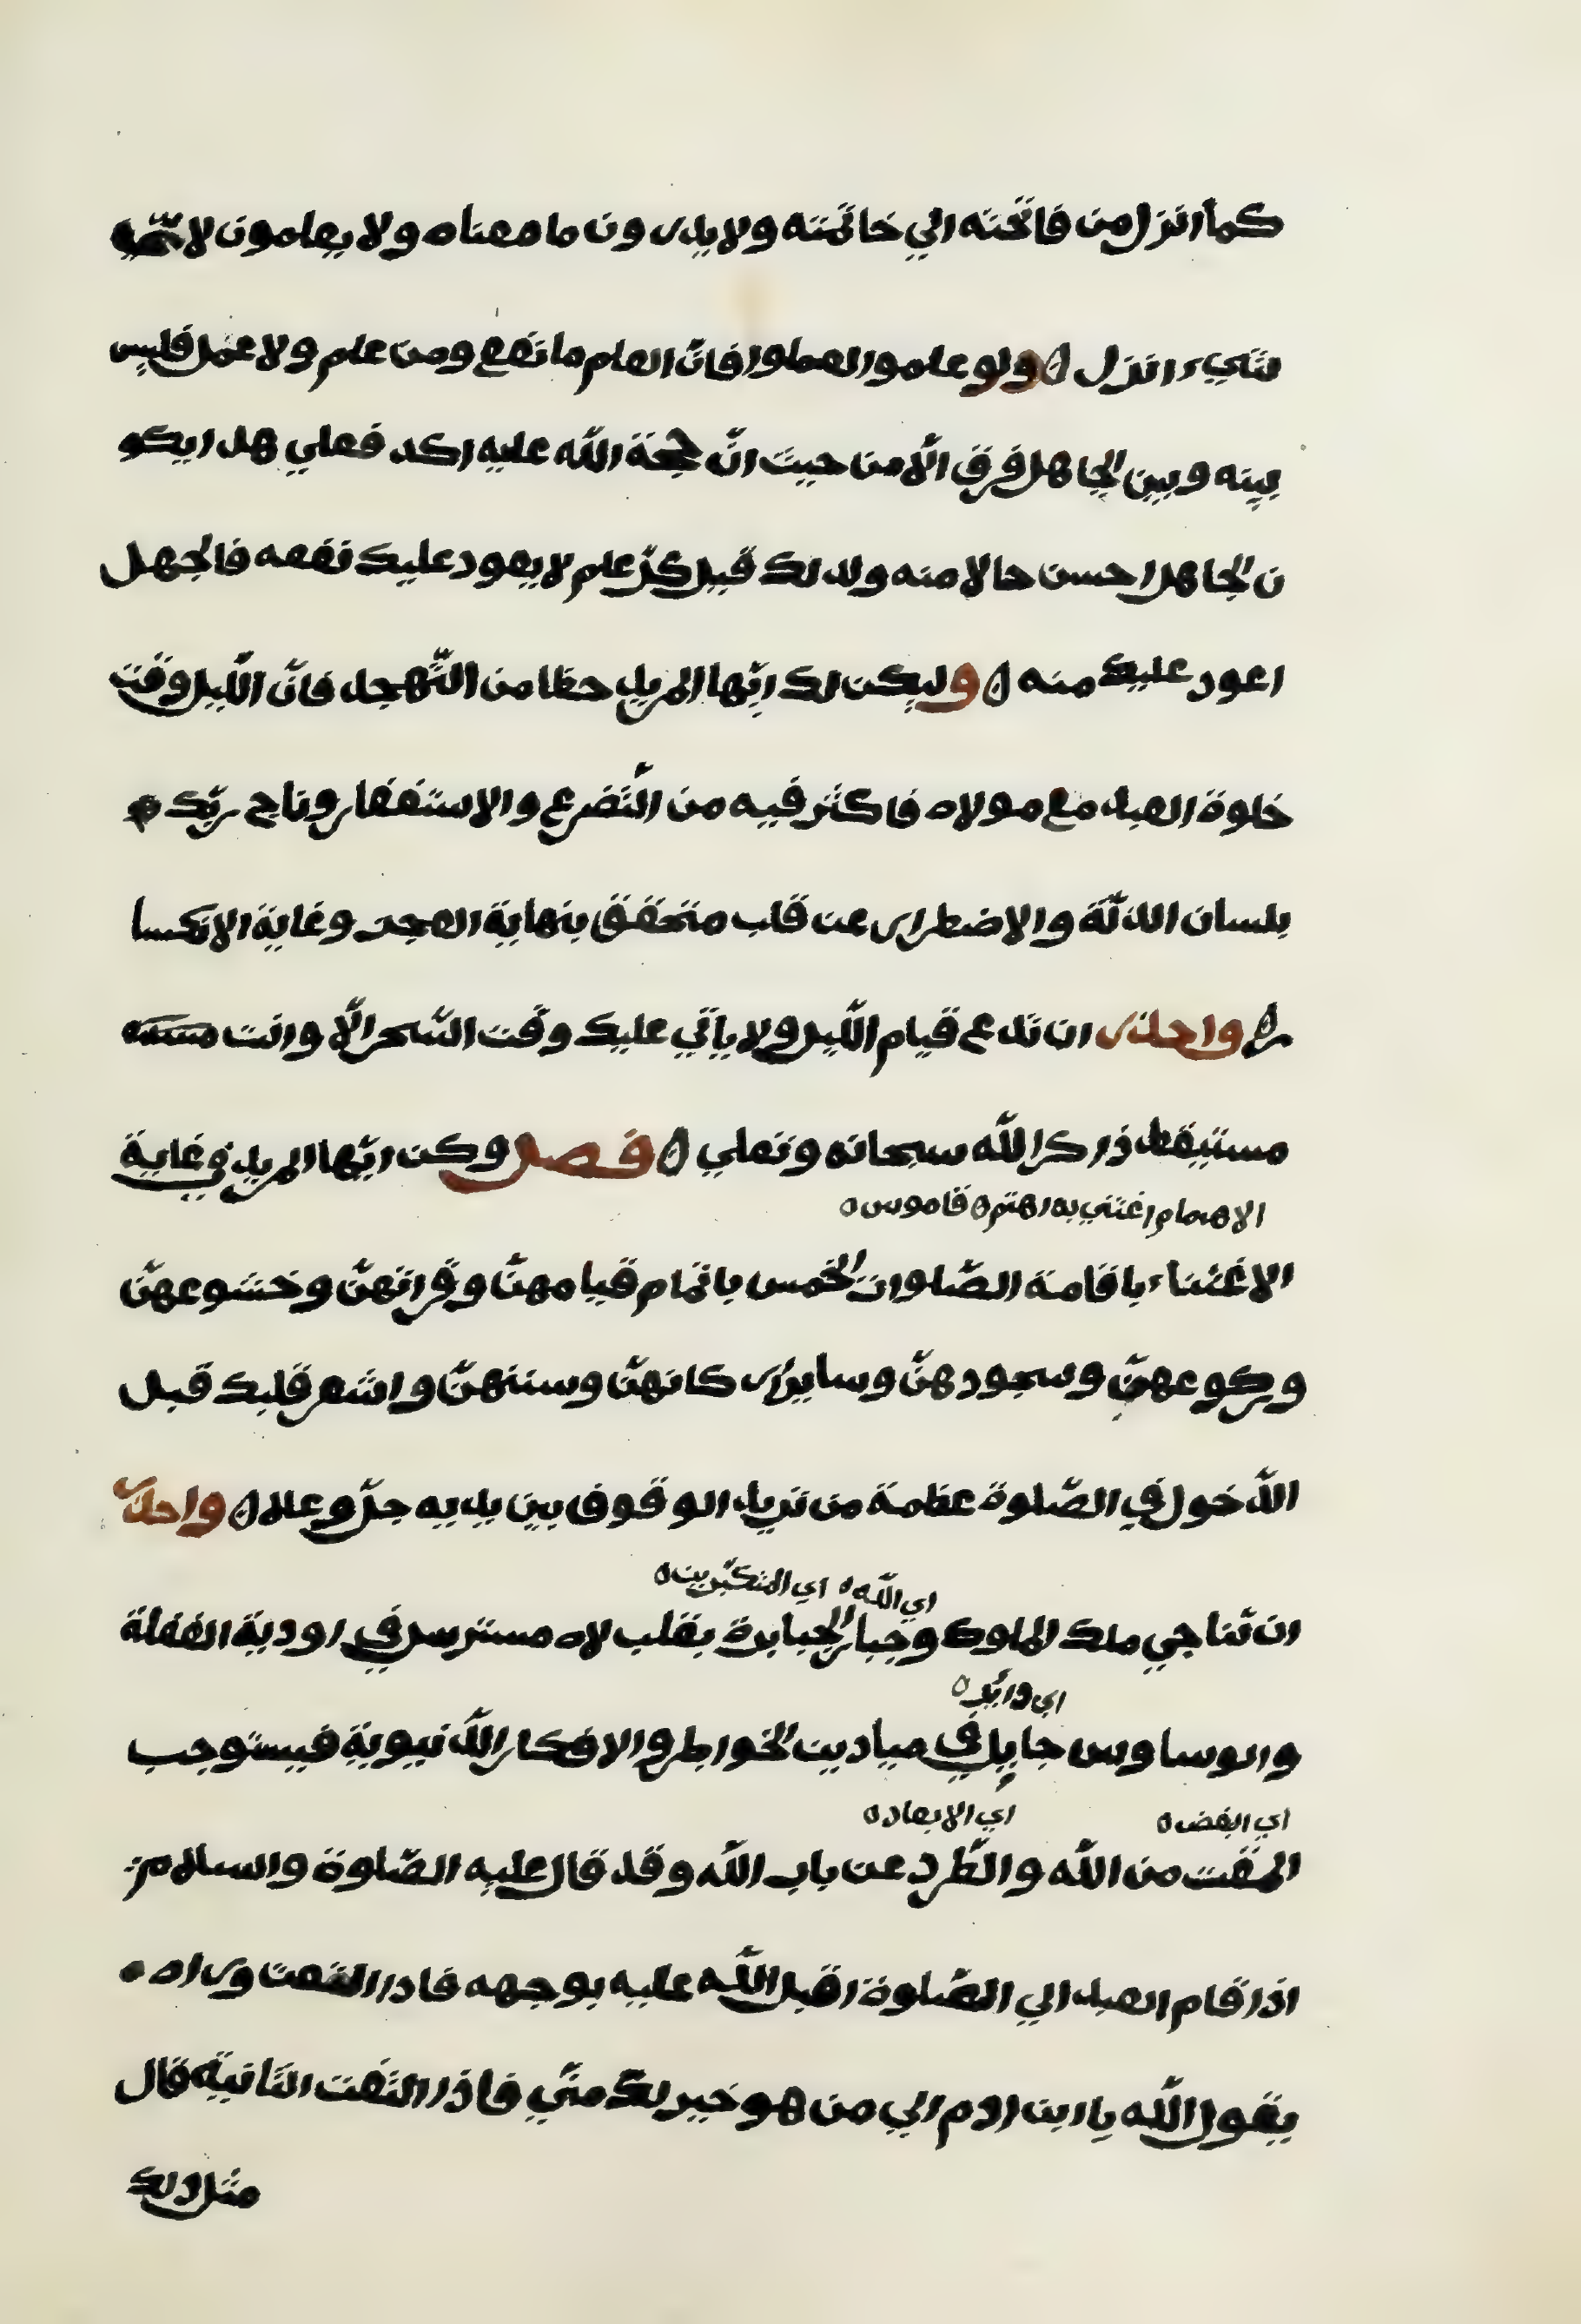 كما انزل من فاتحته الي خاتمته ولا يدرون ما معناه ولا يعلمون لاي
شيء انزل ه ولو علموا لعملوا فانّ العلم ما نفع ومن علم ولا عمل فليس
بينه وبين الجاهل فرق الّا من حيث انّ حجة اللّه عليه اكد فعلي هذا يكو
ن الجاهل احسن حالا منه ولذلك قيل كلّ علم لا يعود عليك نفعه فالجهل
اعود عليك منه ه وليكن لك ايّها المريد حظا من التّهجد فانّ اللّيل وقت
خلوة العبد مع مولاه فاكثر فيه من التّضرع والاستغفار وناج ربّك
بلسان الذلّة والاضطرار عن قلب متحقق بنهاية العجز وغاية الانكسا
ر ه واحذر ان تدع قيام اللّيل ولا ياتي عليك وقت السّحر الّا وانت
مستيقظ ذاكر اللّه سبحانه وتعلي ه فصل وكن ايّها المريد في غاية
الاهمام اغتني به اهتم ه قاموس ه
الاغتناء باقامة الصّلوات الخمس باتمام قيامهنّ وقراتهنّ وخشوعهنّ
وركوعهنّ وسجودهنّ وساير اركانهنّ وسننهنّ واشعر قلبك قبل
الدّخول في الصّلوة عظمة من تريد الوقوف بين يديه جلّ وعلا ه واحذر
اي اللّه ه اي المتكبّرين ه
ان تناجي ملك الملوك وجبار الجبابرة بقلب لاه مسترسل في اودية الغفلة
اي دائر ه
والوساوس جايل في ميادين الخواطر والافكار الدّنيوية فيستوجب
اي البغض ه اي الابعاد ه
المقت من اللّه والطّرد عن باب اللّه وقد قال عليه الصّلوة والسلام
اذا قام العبد الي الصّلوة اقبل اللّه عليه بوجهه فاذا التفت وراه
يقول اللّه يا ابن ادم الي من هو خير لك منّي فاذا التفت الثّانية قال
مثل ذلك